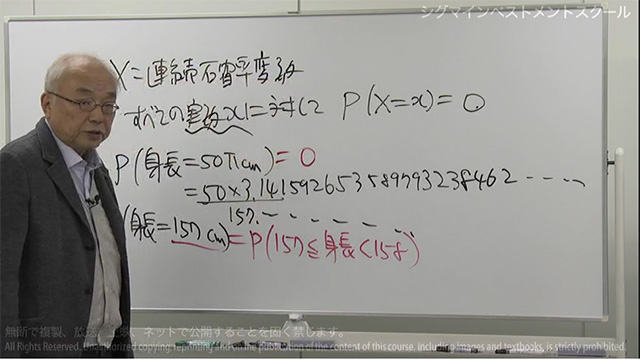 シグマインベストメントスクール
X=連続確率変数
すべての実数xに対して P(X=x)=0
P(身長=50πcm)=0
=50×3.141592653589793238462‥‥
157.
(身長=157cm)=P(157≦身長<158)
無断で複製、放送、上映、ネットで公開することを固く禁じます。
All Rights Reserved. Unauthorized copying, reprinting and on the publication of the content of this course, including images and textbooks, is strictly prohibited.